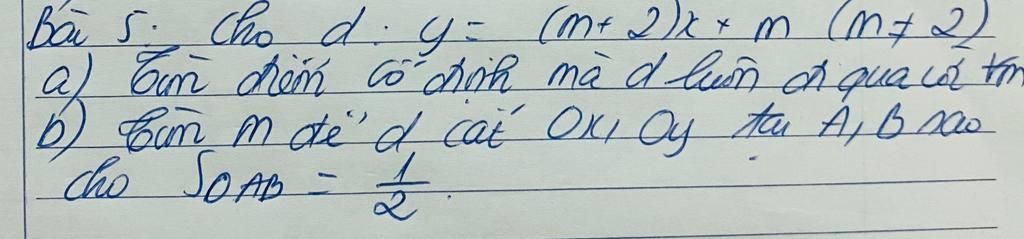 Bài 5: Cho d: y = (m+2)x + m (m ≠ 2)
a) Tìm điểm cố định mà d luôn đi qua với ∀m
b) Tìm m để d cắt Ox, Oy tại A, B sao
cho S OAB = 1/2.